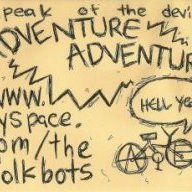 speak of the devi
ADVENTURE
ADVENTUR
HELL YE
www.
yspace.
om/the
olkbots